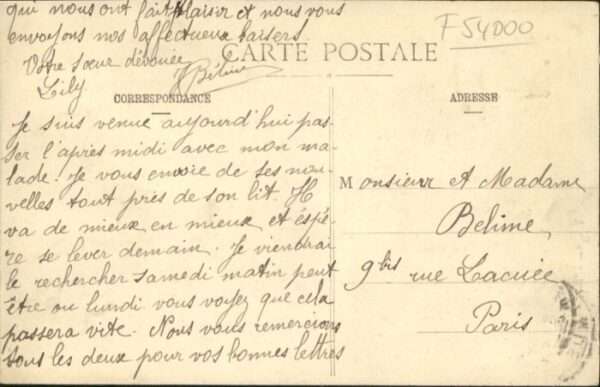 qui nous ont fait plaisir et nous vous
envoyons nos affectueux baisers.
Votre sœur dévouée
Lily Bélime
F54000
CARTE POSTALE
CORRESPONDANCE
Je suis venue aujourd'hui pas-
ser l'après midi avec mon ma-
lade. Je vous envoie de ses nou-
velles tout près de son lit. Il
va de mieux en mieux et éspè-
re se lever demain. Je viendrai
le rechercher samedi matin peut
être ou lundi vous voyez que cela
passera vite. Nous vous remercions
tous les deux pour vos bonnes lettres
ADRESSE
Monsieur et Madame
Belime
9 bis rue Lacuée
Paris